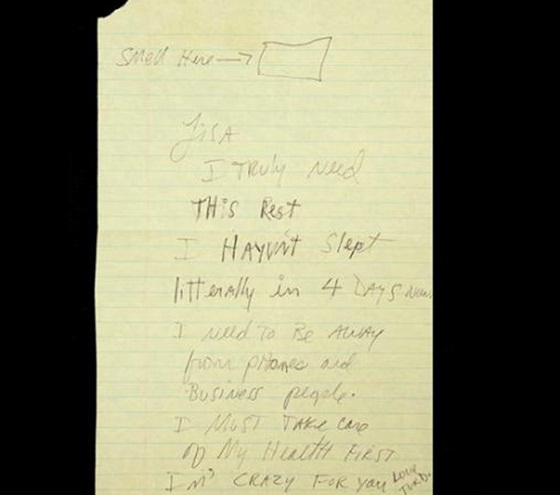 Smell Here
Lisa
I Truly need
THis Rest
I HAVin't Slept
litterally in 4 DAYS Now
I need To Be AWAY
from pHones and
Business people.
I MUST TAKE care
of My HeaLtH FiRST
I'M' CRAZY FOR You
Love
TURD.